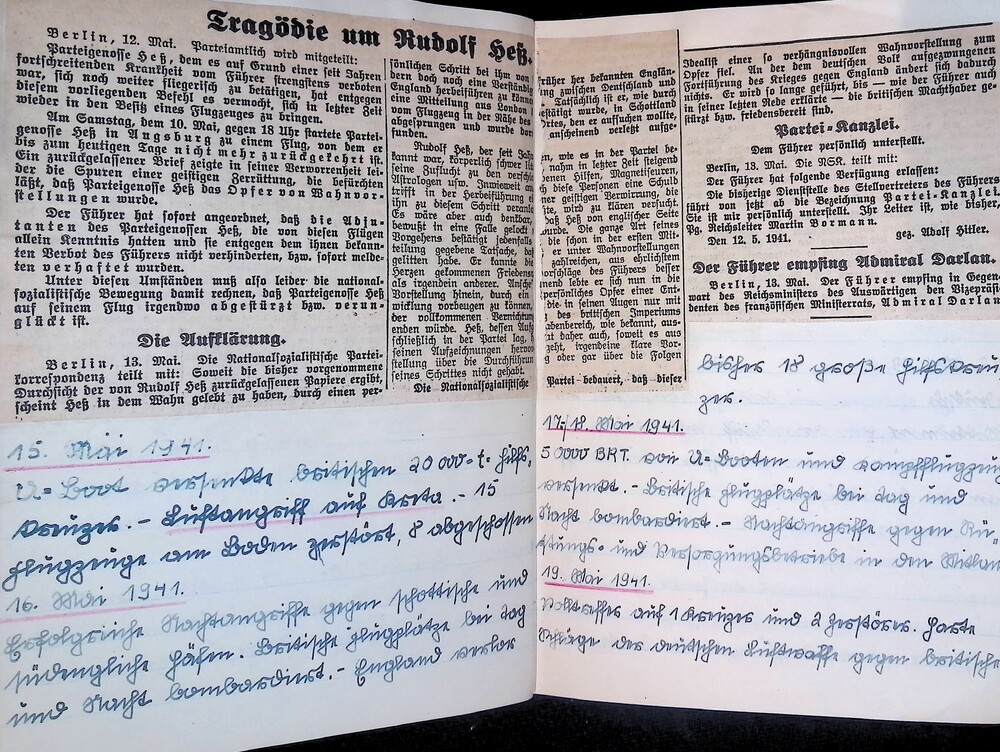 Tragödie um Rudolf Heß.
Berlin, 12. Mai. Parteiamtlich wird mitgeteilt:
Parteigenosse Heß, dem es auf Grund einer seit Jahren
fortschreitenden Krankheit vom Führer strengstens verboten
war, sich noch weiter fliegerisch zu betätigen, hat entgegen
diesem vorliegenden Befehl es vermocht, sich in letzter Zeit
wieder in den Besitz eines Flugzeuges zu bringen.
Am Samstag, dem 10. Mai, gegen 18 Uhr startete Partei-
genosse Heß in Augsburg zu einem Flug, von dem er
bis zum heutigen Tage nicht mehr zurückgekehrt ist.
Ein zurückgelassener Brief zeigte in seiner Verworrenheit lei-
der die Spuren einer geistigen Zerrüttung, die befürchten
läßt, daß Parteigenosse Heß das Opfer von Wahnvor-
stellungen wurde.
Der Führer hat sofort angeordnet, daß die Adju-
tanten des Parteigenossen Heß, die von diesen Flügen
allein Kenntnis hatten und sie entgegen dem ihnen bekann-
ten Verbot des Führers nicht verhinderten, bzw. sofort melde-
ten verhaftet wurden.
Unter diesen Umständen muß also leider die national-
sozialistische Bewegung damit rechnen, daß Parteigenosse Heß
auf seinem Flug irgendwo abgestürzt bzw. verun-
glückt ist.
Die Aufklärung.
Berlin, 13. Mai. Die Nationalsozialistische Partei-
korrespondenz teilt mit: Soweit die bisher vorgenommene
Durchsicht der von Rudolf Heß zurückgelassenen Papiere ergibt,
scheint Heß in dem Wahn gelebt zu haben, durch einen per-
sönlichen Schritt bei ihm von
dern doch noch eine Verständig
England herbeiführen zu könne
eine Mitteilung aus London
vom Flugzeug in der Nähe des
abgesprungen und wurde dor
funden.
Rudolf Heß, der seit Jahr
kannt war, körperlich schwer
eine Zuflucht zu den versch
Astrologen usw. Inwieweit
trifft in der Herbeiführung
ihn zu diesem Schritt veranl
Es wäre aber auch denkbar,
bewußt in eine Falle gelockt
Vorgehens bestätigt jedenfalls
teilung gegebene Tatsache, da
gelitten habe. Er kannte die
Herzen gekommenen Friedens
als irgendein anderer. Ansche
Vorstellung hinein, durch ein
wicklung vorbeugen zu können,
der vollkommenen Vernichtun
enden würde. Heß, dessen Auf
schließlich in der Partei lag,
seinen Aufzeichnungen hervor
stellung über die Durchführun
seines Schrittes nicht gehabt.
Die Nationalsozialistische
früher her bekannten Englän-
ung zwischen Deutschland und
Tatsächlich ist er, wie durch
wurde, in Schottland
Ortes, den er aufsuchen wollte,
anscheinend verletzt aufge-
en, wie es in der Partei be-
nahm in letzter Zeit steigend
en Hilfen, Magnetiseuren,
diese Personen eine Schuld
geistiger Verwirrung, die
wird zu klären versucht.
daß Heß von englischer Seite
urde. Die ganze Art seines
die schon in der ersten Mit-
er unter Wahnvorstellungen
zahlreichen, aus ehrlichstem
vorschläge des Führers besser
nend lebte er sich nun in die
persönliches Opfer einer Ent-
die in seinen Augen nur mit
des britischen Imperiums
abenbereich, wie bekannt, aus-
hat auch, soweit es aus
geht, irgendeine klare Vor-
g oder gar über die Folgen
Partei bedauert, daß dieser
Idealist einer so verhängnisvollen Wahnvorstellung zum
Opfer fiel. An der dem deutschen Volk aufgezwungenen
Fortführung des Krieges gegen England ändert sich dadurch
nichts. Er wird so lange geführt, bis — wie der Führer auch
in seiner letzten Rede erklärte — die britischen Machthaber ge-
stürzt bzw. friedensbereit sind.
Partei-Kanzlei.
Dem Führer persönlich unterstellt.
Berlin, 13. Mai. Die NSK. teilt mit:
Der Führer hat folgende Verfügung erlassen:
Die bisherige Dienststelle des Stellvertreters des Führers
führt von jetzt ab die Bezeichnung Partei-Kanzlei.
Sie ist mir persönlich unterstellt. Ihr Leiter ist, wie bisher,
Pg. Reichsleiter Martin Bormann.
Den 12. 5. 1941. gez. Adolf Hitler.
Der Führer empfing Admiral Darlan.
Berlin, 13. Mai. Der Führer empfing in Gegen-
wart des Reichsministers des Auswärtigen den Vizepräsi-
denten des französischen Ministerrats, Admiral Darlan
15. Mai 1941.
U=Boot versenkte britischen 20 000-t-Hilfs,
kreuzer. – Luftangriff auf Kreta. – 15
Flugzeuge am Boden zerstört, 8 abgeschossen
16. Mai 1941.
Erfolgreiche Nachtangriffe gegen schottische und
südengliche Häfen. Britische Flugplätze bei Tag
und Nacht bombardiert. – England verlor
bisher 18 große Hilfskreu
zer.
17./18. Mai 1941.
50000 BRT. von U=Booten und Kampfflugzeug
versenkt. – Britische Flugplätze bei Tag und
Nacht bombardiert. – Nachtangriffe gegen Rü=
stungs- und Versorgungsbetriebe in den Mitlan
19. Mai 1941.
Volltreffer auf 1 Kreuzer und 2 Zerstörer. Harte
Schläge der deutschen Luftwaffe gegen britische